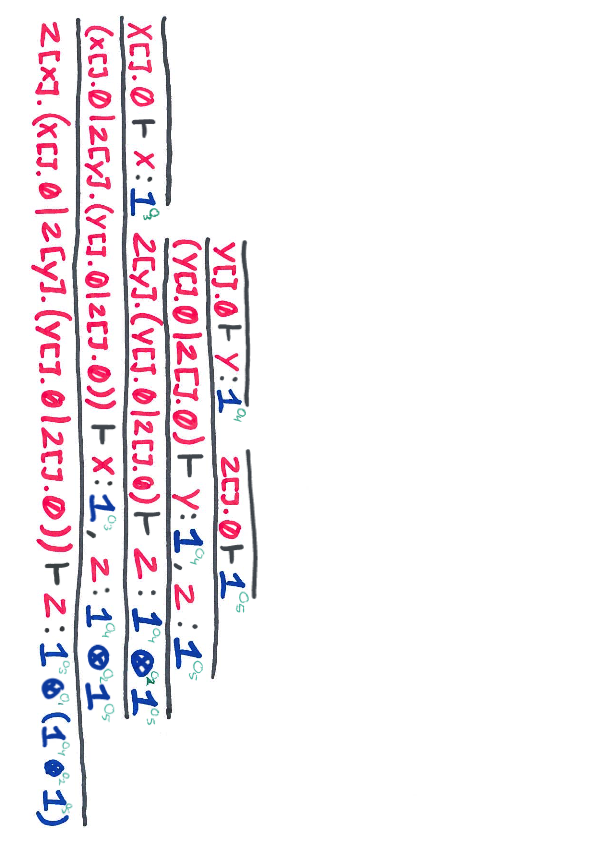 y[].0 ⊢ y:1^o₄ z[].0 ⊢ 1^o₅
(y[].0|z[].0) ⊢ y:1^o₄, z:1^o₅
x[].0 ⊢ x:1^o₃ z[y].(y[].0|z[].0) ⊢ z:1^o₄ ⊗^o₂ 1^o₅
(x[].0|z[y].(y[].0|z[].0)) ⊢ x:1^o₃, z:1^o₄ ⊗^o₂ 1^o₅
z[x].(x[].0|z[y].(y[].0|z[].0)) ⊢ z:1^o₃ ⊗^o₁ (1^o₄ ⊗^o₂ 1^o₅)